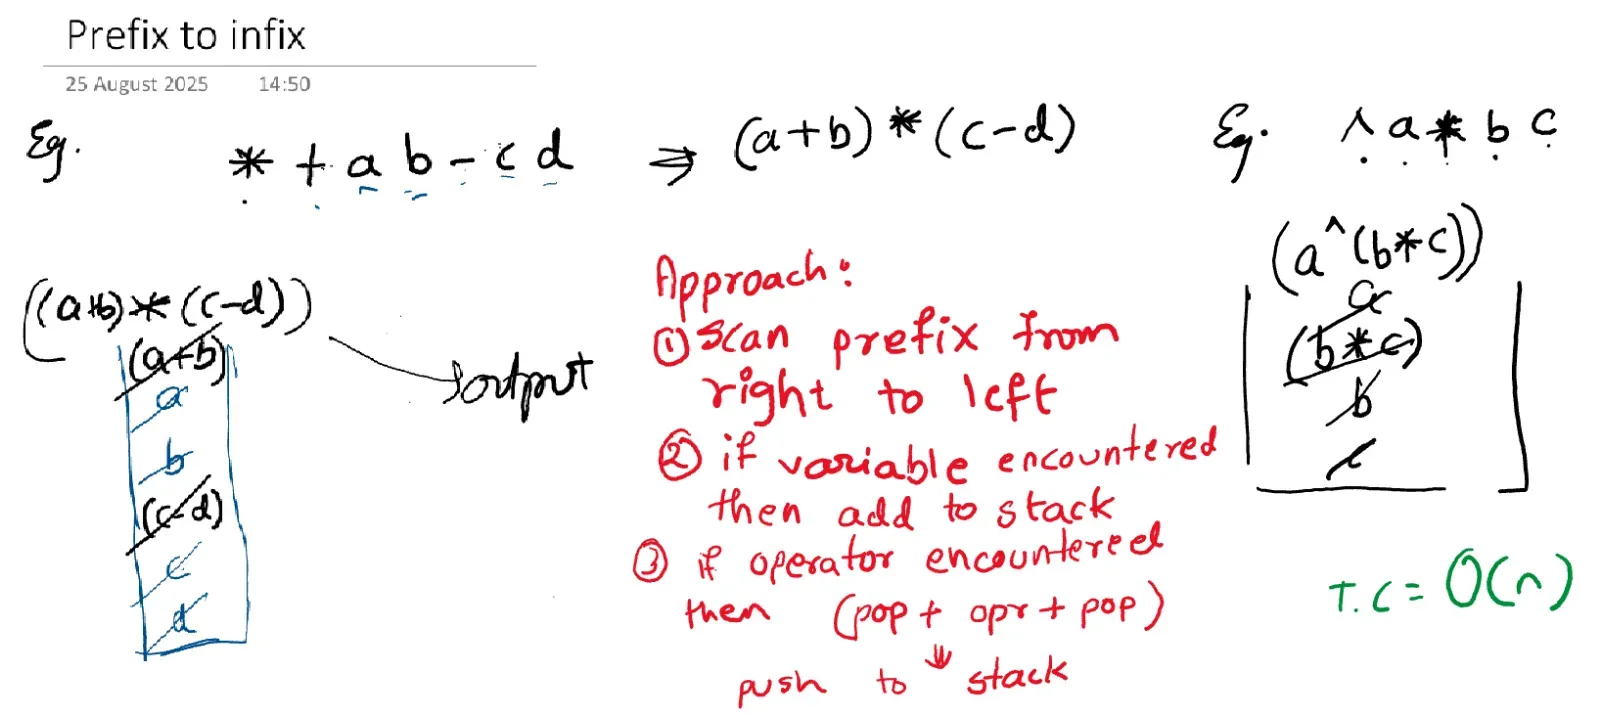 Prefix to infix
25 August 2025 14:50
Eg. * + a b - c d ⇒ (a+b) * (c-d)
((a+b) * (c-d))
(a+b)
a
b
(c-d)
c
d
output
Approach:
① Scan prefix from
right to left
② if variable encountered
then add to stack
③ if operator encountered
then (pop + opr + pop)
↓
push to stack
Eg. ^ a * b c
(a^(b*c))
a
(b*c)
b
c
T.C = O(n)